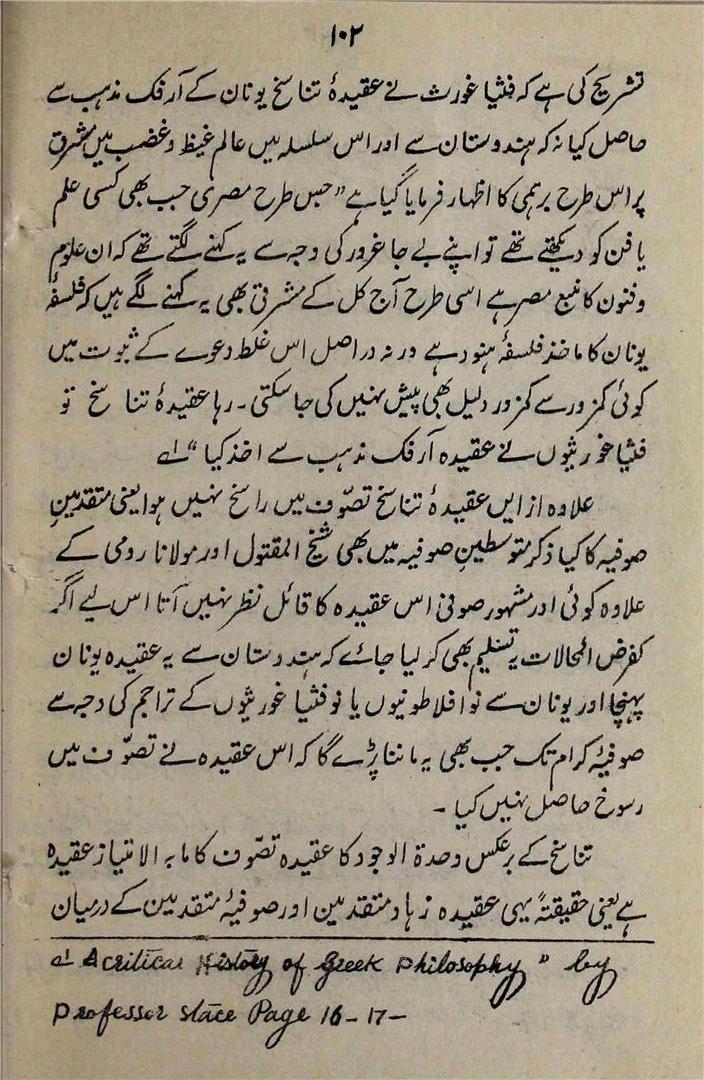 ۱۰۲
تشریح کی ہے کہ فیثا غورث نے عقیدۂ تناسخ یونان کے آرفک مذہب سے
حاصل کیا نہ کہ ہندوستان سے اور اس سلسلہ میں عالم غیظ و غضب میں مشرق
پر اس طرح برہمی کا اظہار فرمایا گیا ہے "جس طرح مصری جب بھی کسی علم
یا فن کو دیکھتے تھے تو اپنے بے جا غرور کی وجہ سے یہ کہنے لگتے تھے کہ ان علوم
و فنون کا منبع مصر ہے اسی طرح آج کل کے مشرقی بھی یہ کہنے لگے ہیں کہ فلسفۂ
یونان کا ماخذ فلسفۂ ہنود ہے ورنہ دراصل اس غلط دعوے کے ثبوت میں
کوئی کمزور سے کمزور دلیل بھی پیش نہیں کی جا سکتی۔ رہا عقیدۂ تناسخ تو
فیثا غورثیوں نے عقیدہ آرفک مذہب سے اخذ کیا" ۱ے
علاوہ ازایں عقیدۂ تناسخ تصوّف میں راسخ نہیں ہوا یعنی متقدمینِ
صوفیہ کا کیا ذکر متوسطینِ صوفیہ میں بھی شیخ المقتول اور مولانا رومی کے
علاوہ کوئی اور مشہور صوفی اس عقیدہ کا قائل نظر نہیں آتا اس لیے اگر
بفرض المحالات یہ تسلیم بھی کر لیا جائے کہ ہندوستان سے یہ عقیدہ یونان
پہنچا اور یونان سے نو افلاطونیوں یا نو فیثا غورثیوں کے تراجم کی وجہ سے
صوفیۂ کرام تک جب بھی یہ ماننا پڑے گا کہ اس عقیدہ نے تصوّف میں
رسوخ حاصل نہیں کیا۔
تناسخ کے برعکس وحدۃ الوجود کا عقیدہ تصوّف کا مابہ الامتیاز عقیدہ
ہے یعنی حقیقتہً یہی عقیدہ زہاد متقدمین اور صوفیۂ متقدمین کے درمیان
۱ے A critical History of Greek Philosophy" by
Professor stace Page 16-17-